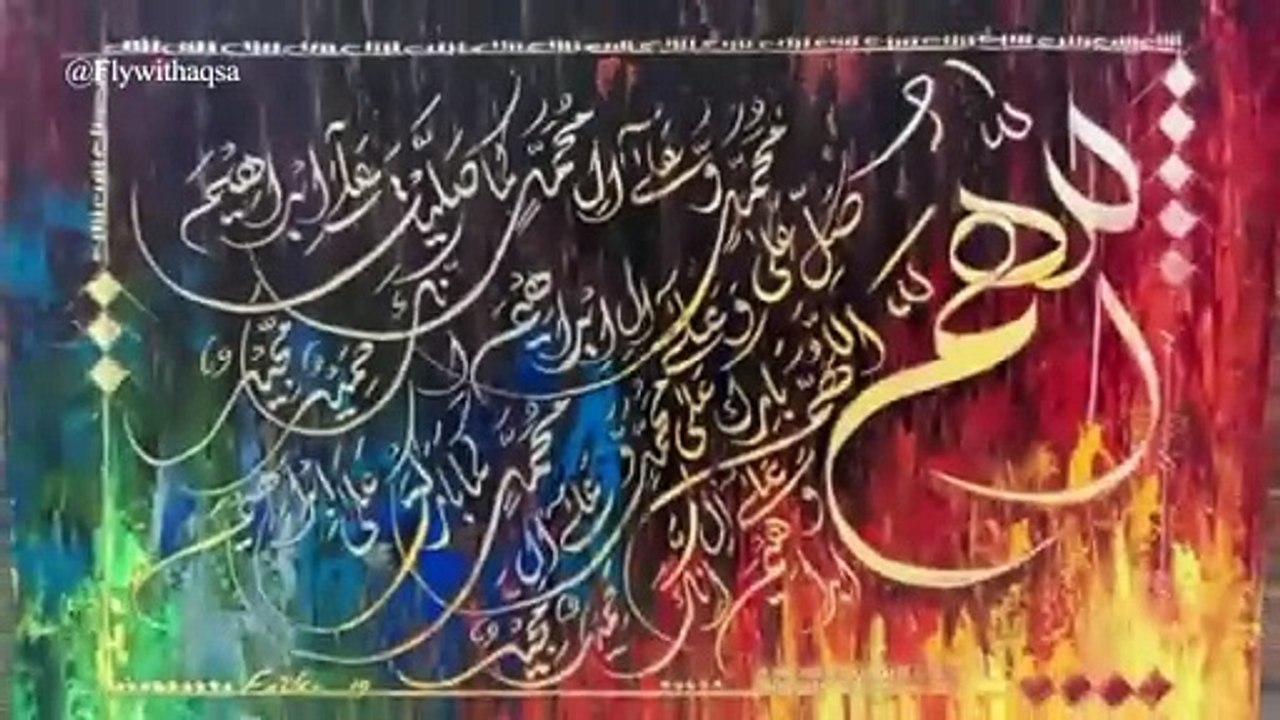 @Flywithaqsa
اللهم
صَلِّ عَلٰى مُحَمَّدٍ وَّعَلٰٓى اٰلِ مُحَمَّدٍ كَمَا صَلَّيْتَ عَلٰٓى اِبْرَاهِيْمَ
وَعَلٰٓى اٰلِ اِبْرَاهِيْمَ اِنَّكَ حَمِيْدٌ مَّجِيْدٌ
اَللّٰهُمَّ بَارِكْ عَلٰى مُحَمَّدٍ وَّعَلٰٓى اٰلِ مُحَمَّدٍ كَمَا بَارَكْتَ عَلٰٓى اِبْرَاهِيْمَ
وَعَلٰٓى اٰلِ اِبْرَاهِيْمَ اِنَّكَ حَمِيْدٌ مَّجِيْدٌ